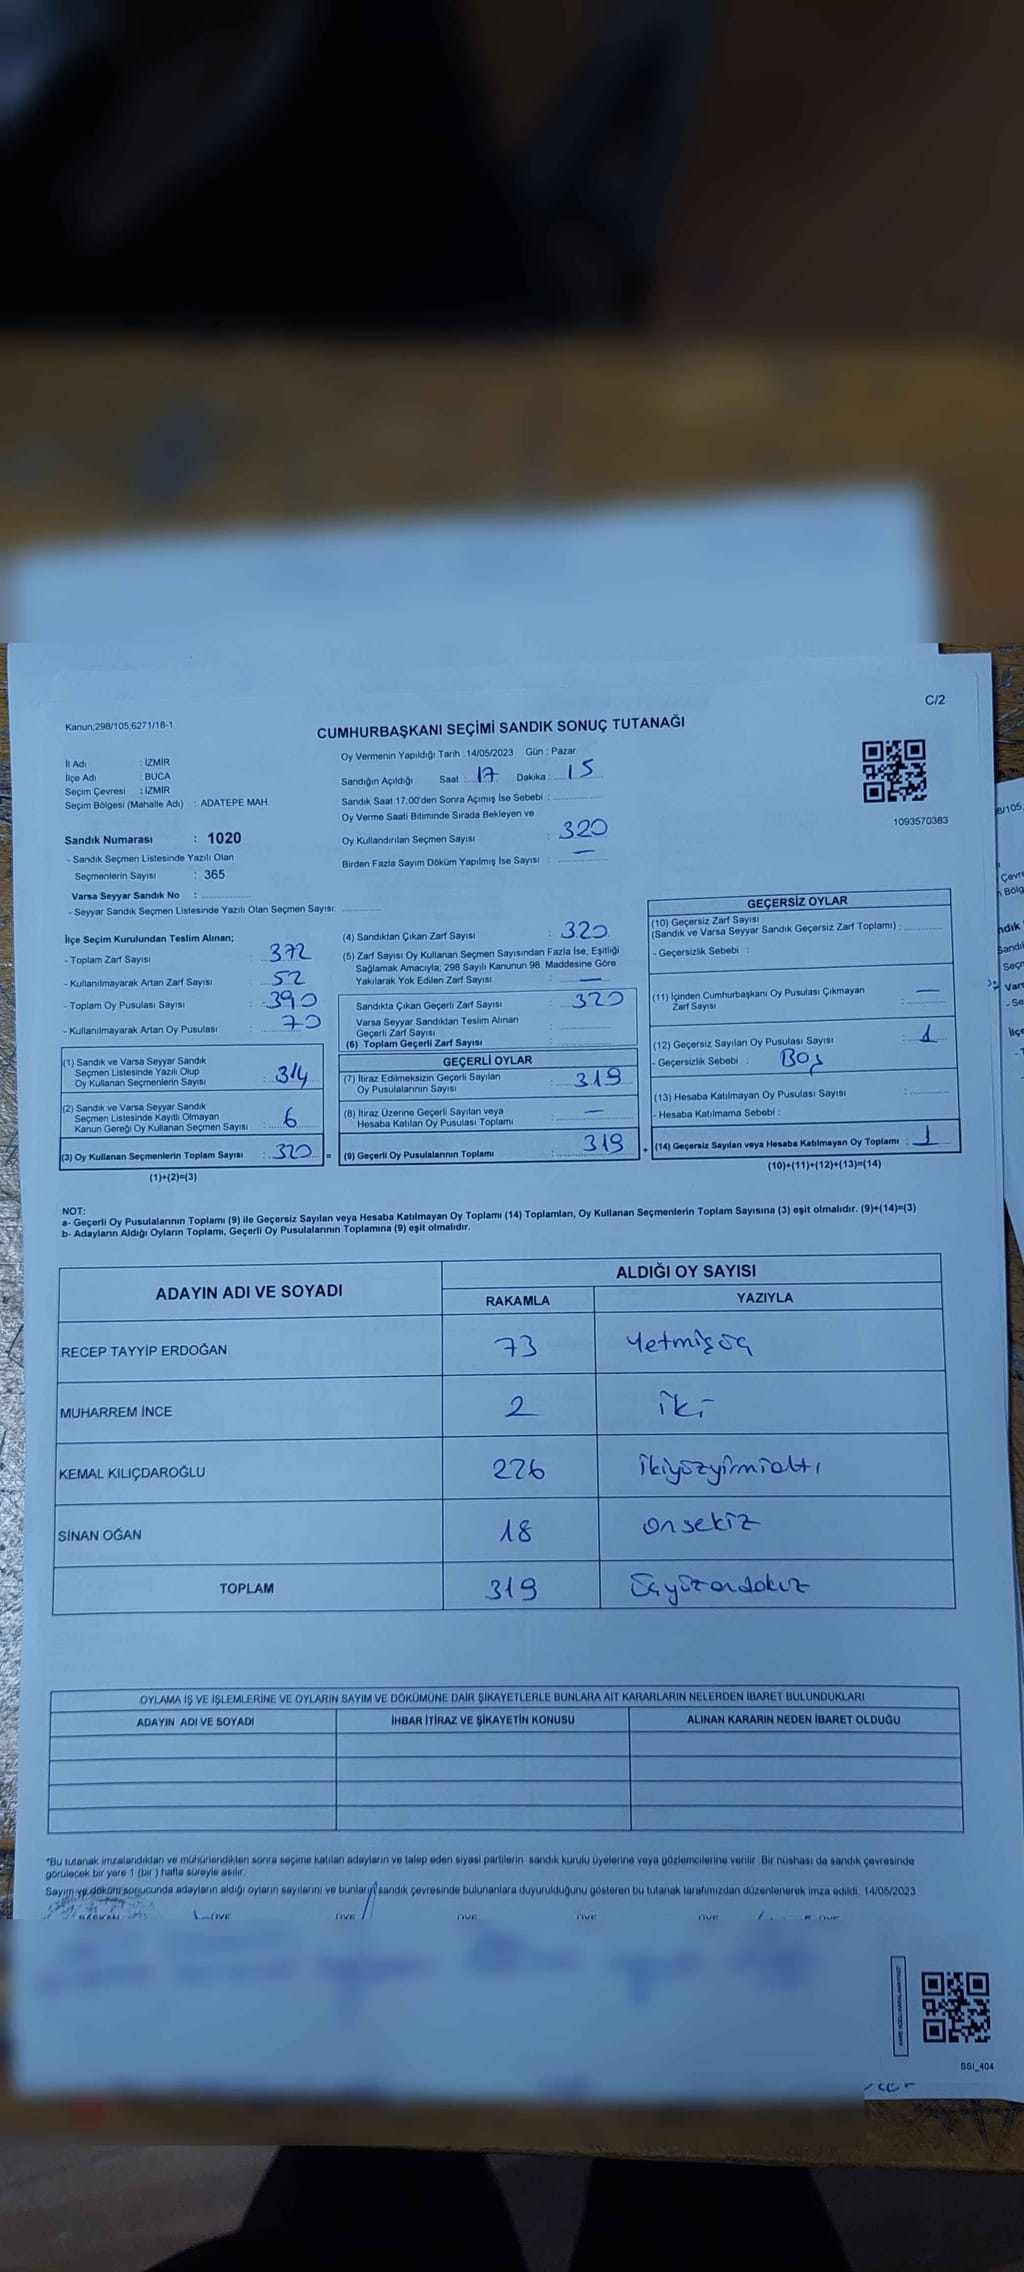 C/2
Kanun;298/105,6271/18-1
CUMHURBAŞKANI SEÇİMİ SANDIK SONUÇ TUTANAĞI
İl Adı : İZMİR
İlçe Adı : BUCA
Seçim Çevresi : İZMİR
Seçim Bölgesi (Mahalle Adı) : ADATEPE MAH.
Sandık Numarası : 1020
- Sandık Seçmen Listesinde Yazılı Olan
Seçmenlerin Sayısı : 365
Varsa Seyyar Sandık No :
- Seyyar Sandık Seçmen Listesinde Yazılı Olan Seçmen Sayısı:
Oy Vermenin Yapıldığı Tarih : 14/05/2023 Gün : Pazar
Sandığın Açıldığı Saat : 17 Dakika : 15
Sandık Saat 17.00'den Sonra Açımış İse Sebebi :
Oy Verme Saati Bitiminde Sırada Bekleyen ve
Oy Kullandırılan Seçmen Sayısı : 320
Birden Fazla Sayım Döküm Yapılmış İse Sayısı : —
1093570383
İlçe Seçim Kurulundan Teslim Alınan;
- Toplam Zarf Sayısı : 372
- Kullanılmayarak Artan Zarf Sayısı : 52
- Toplam Oy Pusulası Sayısı : 390
- Kullanılmayarak Artan Oy Pusulası : 70
(1) Sandık ve Varsa Seyyar Sandık
Seçmen Listesinde Yazılı Olup
Oy Kullanan Seçmenlerin Sayısı : 314
(2) Sandık ve Varsa Seyyar Sandık
Seçmen Listesinde Kayıtlı Olmayan
Kanun Gereği Oy Kullanan Seçmen Sayısı : 6
(3) Oy Kullanan Seçmenlerin Toplam Sayısı : 320 =
(1)+(2)=(3)
(4) Sandıktan Çıkan Zarf Sayısı : 320
(5) Zarf Sayısı Oy Kullanan Seçmen Sayısından Fazla İse, Eşitliği
Sağlamak Amacıyla; 298 Sayılı Kanunun 98. Maddesine Göre
Yakılarak Yok Edilen Zarf Sayısı : —
Sandıkta Çıkan Geçerli Zarf Sayısı : 320
Varsa Seyyar Sandıktan Teslim Alınan
Geçerli Zarf Sayısı :
(6) Toplam Geçerli Zarf Sayısı :
GEÇERLİ OYLAR
(7) İtiraz Edilmeksizin Geçerli Sayılan
Oy Pusulalarının Sayısı : 319
(8) İtiraz Üzerine Geçerli Sayılan veya
Hesaba Katılan Oy Pusulası Toplamı : —
(9) Geçerli Oy Pusulalarının Toplamı : 319 +
GEÇERSİZ OYLAR
(10) Geçersiz Zarf Sayısı
(Sandık ve Varsa Seyyar Sandık Geçersiz Zarf Toplamı) :
- Geçersizlik Sebebi :
(11) İçinden Cumhurbaşkanı Oy Pusulası Çıkmayan
Zarf Sayısı : —
(12) Geçersiz Sayılan Oy Pusulası Sayısı : 1
- Geçersizlik Sebebi : Boş
(13) Hesaba Katılmayan Oy Pusulası Sayısı :
- Hesaba Katılmama Sebebi :
(14) Geçersiz Sayılan veya Hesaba Katılmayan Oy Toplamı : 1
(10)+(11)+(12)+(13)=(14)
NOT:
a- Geçerli Oy Pusulalarının Toplamı (9) ile Geçersiz Sayılan veya Hesaba Katılmayan Oy Toplamı (14) Toplamları, Oy Kullanan Seçmenlerin Toplam Sayısına (3) eşit olmalıdır. (9)+(14)=(3)
b- Adayların Aldığı Oyların Toplamı, Geçerli Oy Pusulalarının Toplamına (9) eşit olmalıdır.
ADAYIN ADI VE SOYADI ALDIĞI OY SAYISI
RAKAMLA YAZIYLA
RECEP TAYYİP ERDOĞAN 73 Yetmişüç
MUHARREM İNCE 2 İki
KEMAL KILIÇDAROĞLU 226 İkiyüzyirmialtı
SİNAN OĞAN 18 onsekiz
TOPLAM 319 Üçyüzondokuz
OYLAMA İŞ VE İŞLEMLERİNE VE OYLARIN SAYIM VE DÖKÜMÜNE DAİR ŞİKAYETLERLE BUNLARA AİT KARARLARIN NELERDEN İBARET BULUNDUKLARI
ADAYIN ADI VE SOYADI İHBAR İTİRAZ VE ŞİKAYETİN KONUSU ALINAN KARARIN NEDEN İBARET OLDUĞU
*Bu tutanak imzalandıktan ve mühürlendikten sonra seçime katılan adayların ve talep eden siyasi partilerin sandık kurulu üyelerine veya gözlemcilerine verilir. Bir nüshası da sandık çevresinde
görülecek bir yere 1 (bir ) hafta süreyle asılır.
Sayım ve döküm sonucunda adayların aldığı oyların sayılarını ve bunların sandık çevresinde bulunanlara duyurulduğunu gösteren bu tutanak tarafımızdan düzenlenerek imza edildi. 14/05/2023
BAŞKAN ÜYE ÜYE ÜYE ÜYE ÜYE ÜYE
SSİ_404